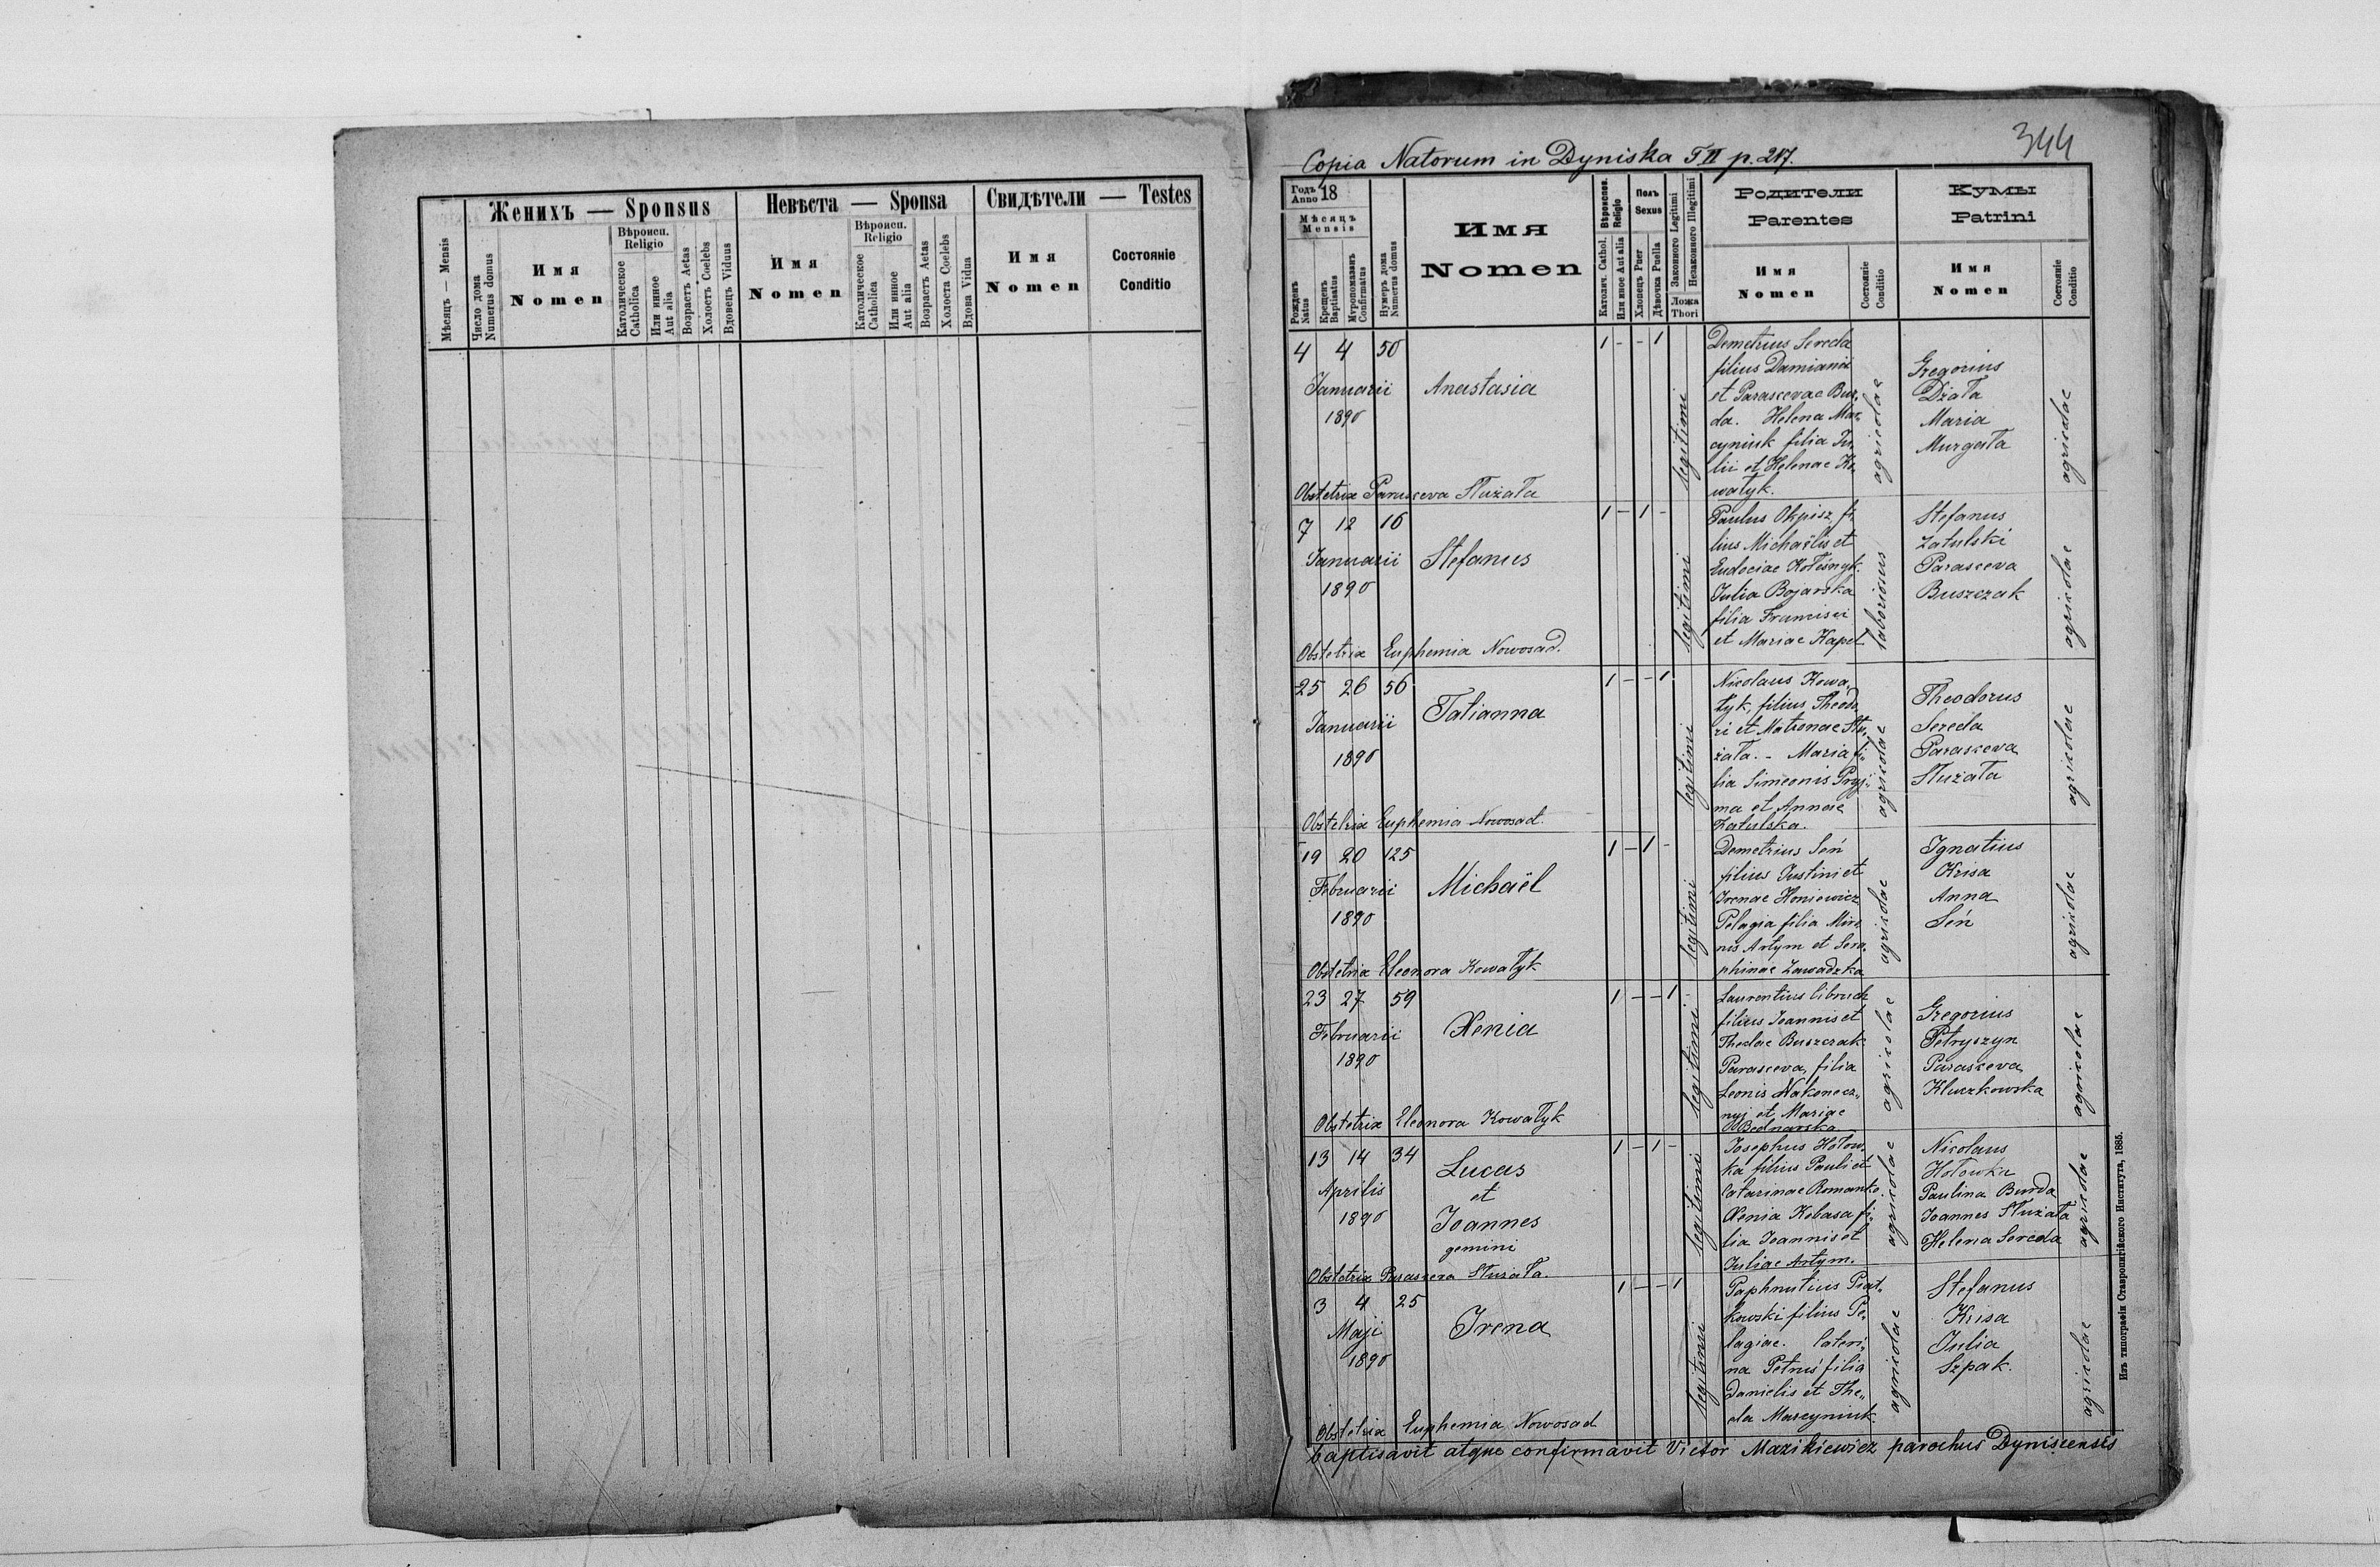 Женихъ — Sponsus
Невѣста — Sponsa
Свидѣтели — Testes
Мѣсяцъ — Mensis
Число дома
Numerus domus
Имя
Nomen
Вѣроисп.
Religio
Католическое
Catholica
Или инное
Aut alia
Возрастъ Aetas
Холостъ Coelebs
Вдовецъ Viduus
Имя
Nomen
Вѣроисп.
Religio
Католическое
Catholica
Или инное
Aut alia
Возрастъ Aetas
Холоста Coelebs
Вдова Vidua
Имя
Nomen
Состояніе
Conditio
344
Copia Natorum in Dyniska T II p. 217.
Годъ
Anno 18
Мѣсяцъ
Mensis
Рожденъ
Natus
Крещенъ
Baptisatus
Муропомазанъ
Confirmatus
Нумеръ дома
Numerus domus
Имя
Nomen
Вѣроиспов.
Religio
Католич. Cathol.
Или иное Aut alia
Полъ
Sexus
Хлопецъ Puer
Дѣвочка Puella
Законного Legitimi
Незаконного Illegitimi
Ложа
Thori
Родители
Parentes
Имя
Nomen
Состояніе
Conditio
Кумы
Patrini
Имя
Nomen
Состояніе
Conditio
4 4 50 1 - - 1
Januarii
1890
Anastasia
legitimi
Demetrius Sereda
filius Damiani
et Parascevae Bur,,
da. Helena Mar,,
cyniuk filia Ju,,
lii et Helenae Ko,,
wałyk.
agricolae
Gregorius
Dżała
Maria
Murgała
agricolae
Obstetrix Parasceva Służała
7 12 16 1 - 1 -
Januarii
1890
Stefanus
legitimi
Paulus Okpisz, fi,,
lius Michaëlis et
Eudociae Kołiśnyk.
Julia Bojarska
filia Francisci
et Mariae Kapel
laboriosus
Stefanus
Zatulski
Parasceva
Buszczak
agricolae
Obstetrix Euphemia Nowosad.
25 26 56 1 - - 1
Januarii
1890
Tatianna
legitimi
Nicolaus Kowa,,
łyk, filius Theodo,,
ri et Matronae Słu,,
żała. - Maria fi,,
lia Simeonis Pryj,,
ma et Annae
Zatulska.
agricolae
Theodorus
Sereda
Parasceva
Służała
agricolae
Obstetrix Euphemia Nowosad.
19 20 125 1 - 1 -
Februarii
1890
Michaël
legitimi
Demetrius Seń
filius Justini et
Irenae Honiewicz
Pelagia filia Miro,,
nis Artym et Sera,,
phinae Zawadzka
agricolae
Ignatius
Krisa
Anna
Seń
agricolae
Obstetrix Eleonora Kowałyk
23 27 59 1 - - 1
Februarii
1890
Xenia
legitimi
Laurentius Cibruch
filius Joannis et
Theclae Buszczak.
Parasceva, filia
Leonis Nakonecz,,
nyj et Mariae
Bednarska
agricolae
Gregorius
Petryszyn
Parasceva
Kluczkowska
agricolae
Obstetrix Eleonora Kowałyk
13 14 34 1 - 1 -
Aprilis
1890
Lucas
et
Joannes
gemini
legitimi
Josephus Hołow,,
ka filius Pauli et
Catarinae Romanko.
Xenia Kobasa fi,,
lia Joannis et
Juliae Artym.
agricolae
Nicolaus
Hołowka
Paulina Burda
Joannes Służała
Helena Sereda
agricolae
Obstetrix Parasceva Służała.
3 4 25 1 - - 1
Maji
1890
Irena
legitimi
Paphnutius Piat,,
kowski filius Pe,,
lagiae. Cateri,,
na Petruś filia
Danielis et The,,
cla Marcyniuk.
agricolae
Stefanus
Krisa
Julia
Szpak.
agricolae
Obstetrix Euphemia Nowosad
baptisavit atque confirmavit Victor Mazikiewicz parochus Dyniscensis
Изъ типографіи Ставропигійского Института, 1885.